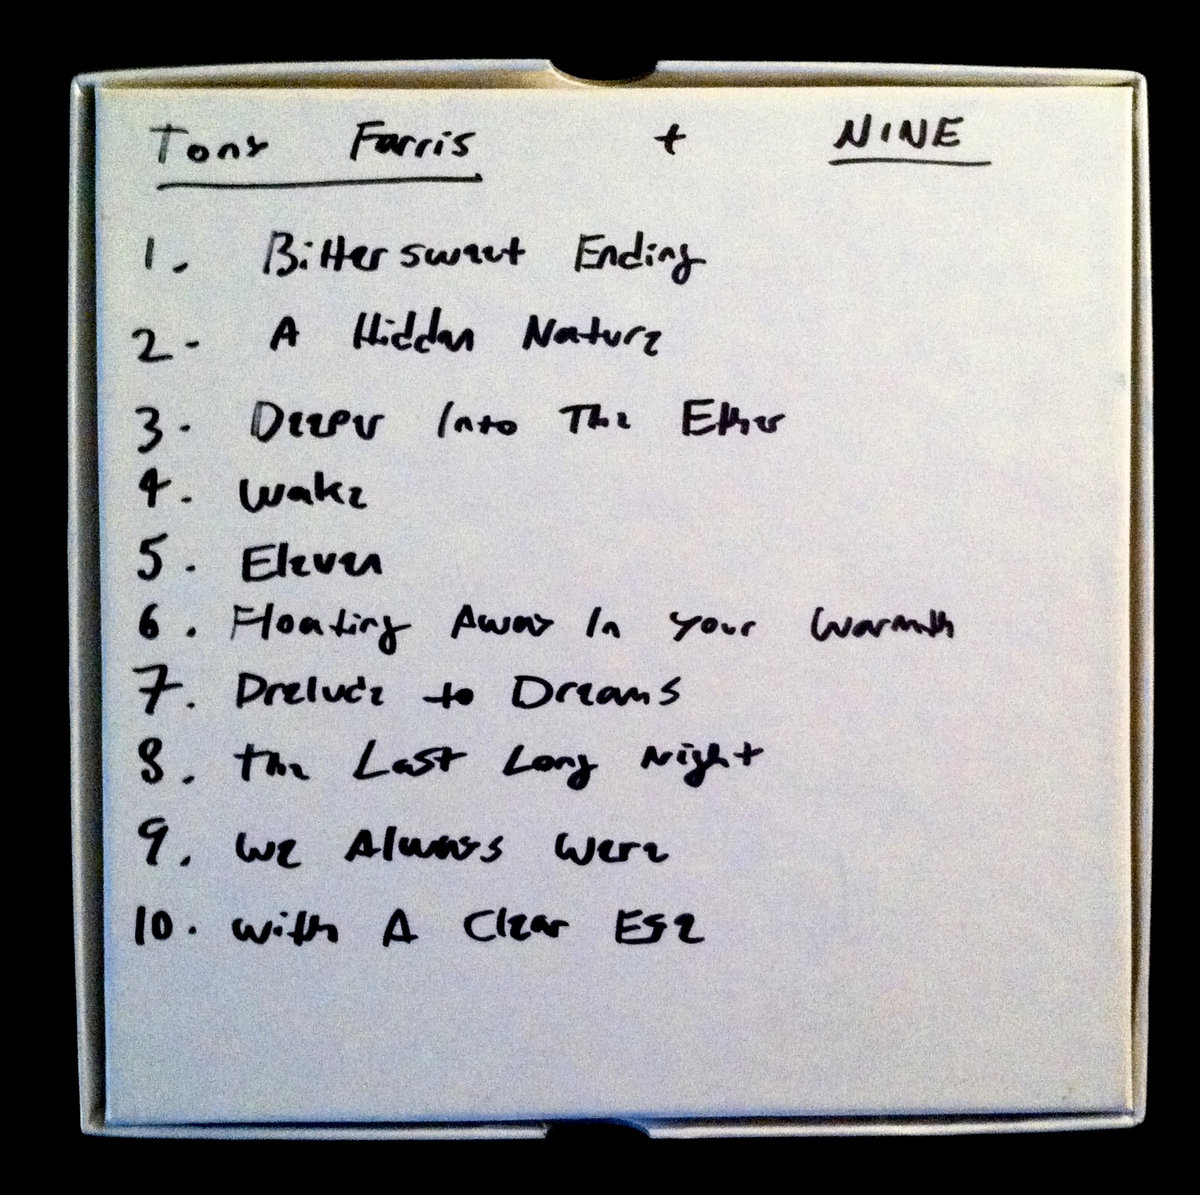 Tony Farris + NINE
1. Bittersweet Ending
2- A Hidden Nature
3- Deeper Into The Ether
4. Wake
5. Eleven
6. Floating Away In Your Warmth
7. Prelude to Dreams
8. The Last Long Night
9. We Always Were
10. With A Clear Eye